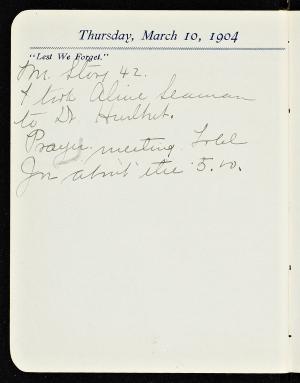 Thursday, March 10, 1904
"Lest We Forget."
Mr. Story 42.
I took Aline Seaman
to Dr Hurlbut.
Prayer meeting. Told
Jn about the 5.00.